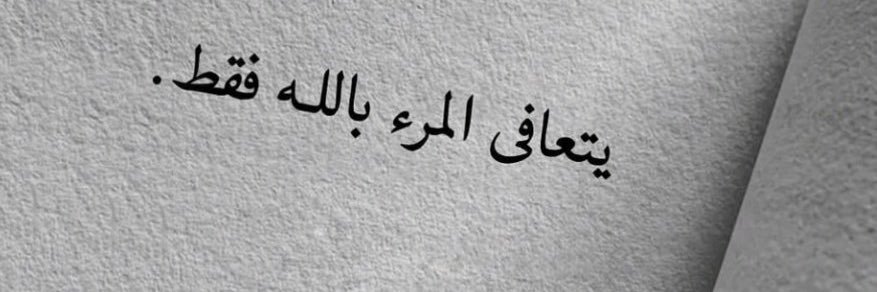 يتعافى المرء بالله فقط.